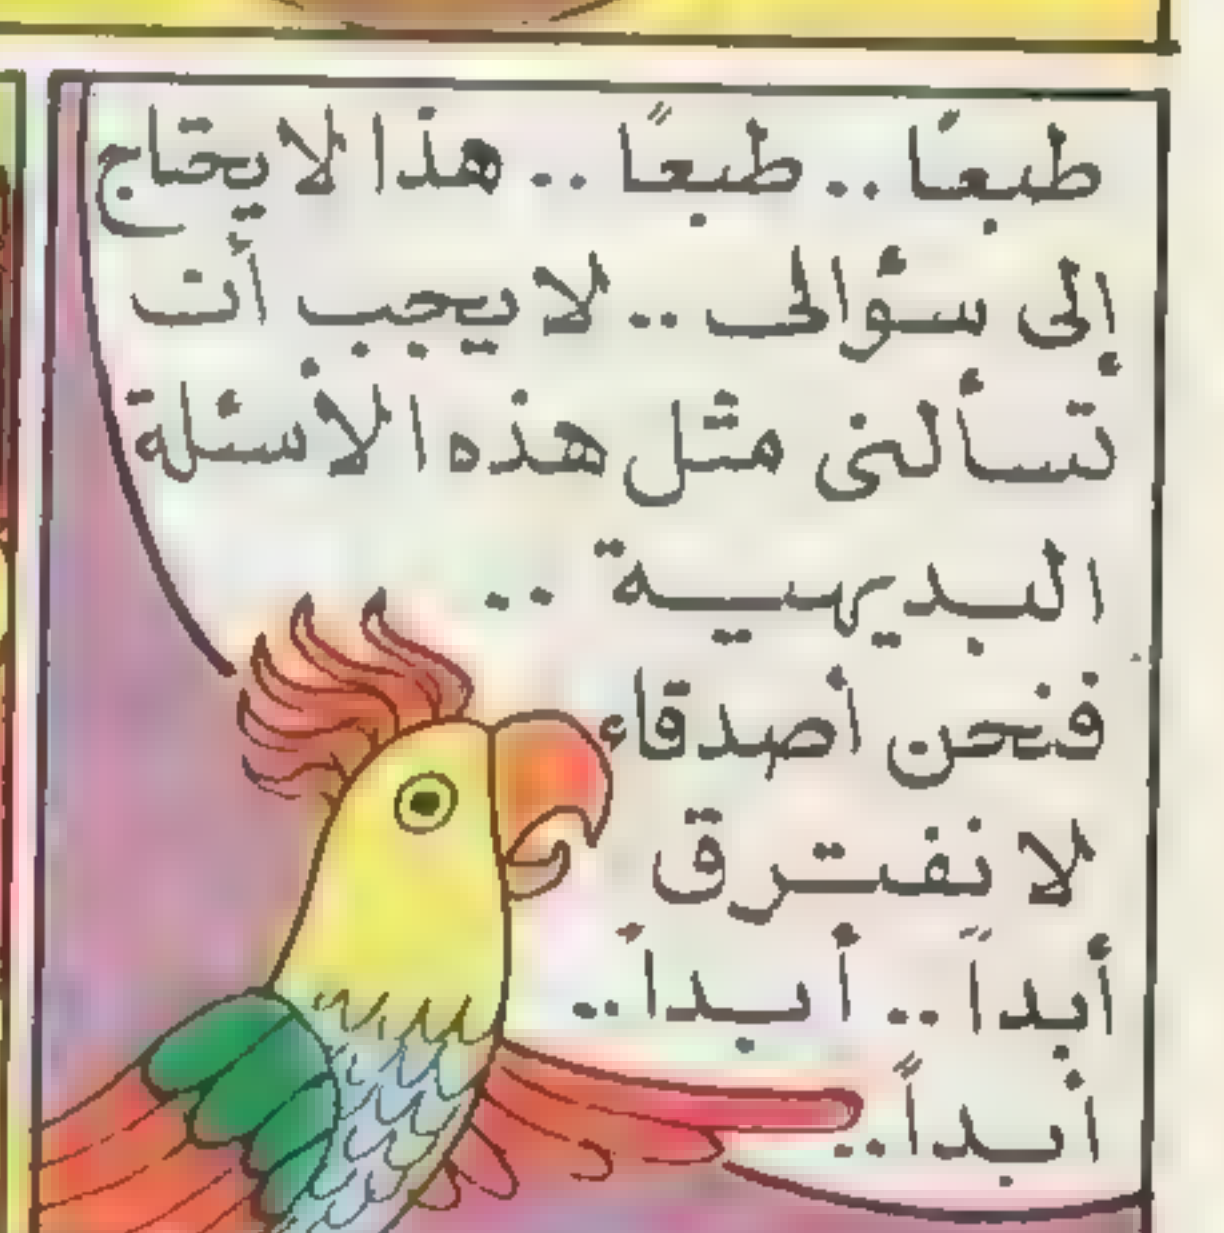 طبعًا .. طبعًا .. هذا لا يحتاج
إلى سؤالى .. لا يجب أن
تسألنى مثل هذه الأسئلة
البديهية ..
فنحن أصدقاء
لا نفترق
أبداً .. أبداً ..
أبداً ..